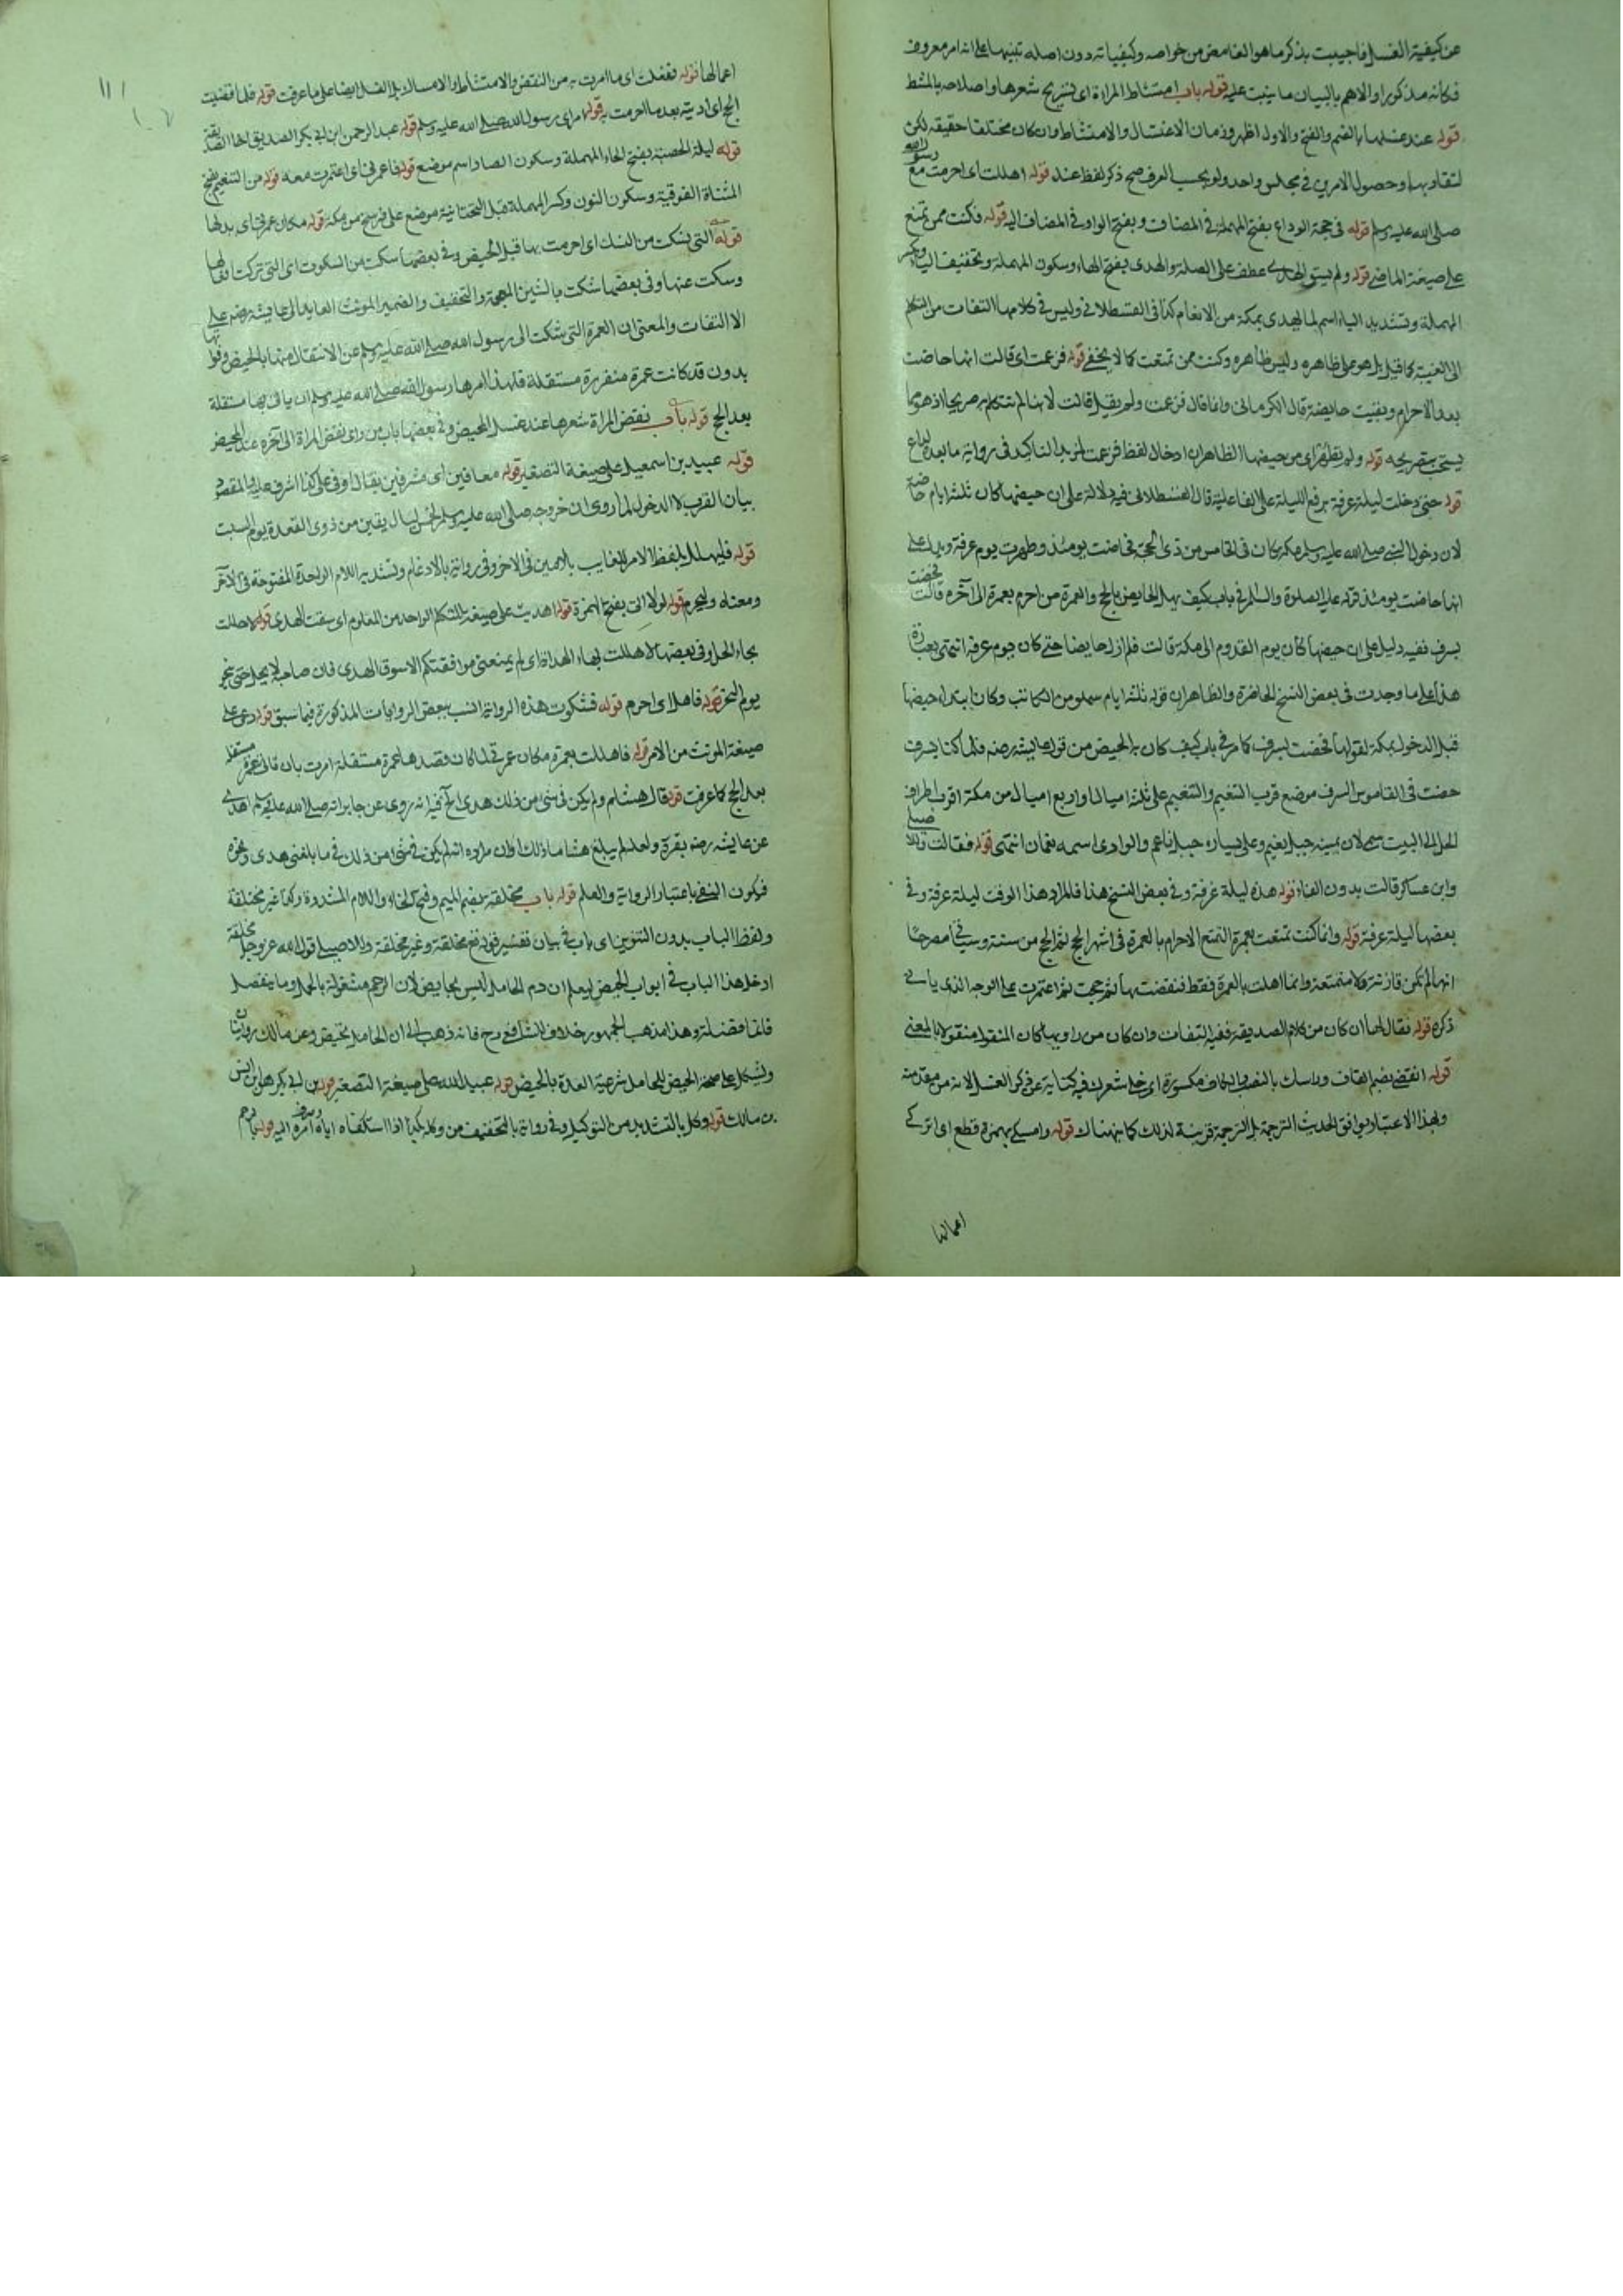 عن كيفية الغسل فاجيبت بذكر ما هو الغامض من خواصه وكيفياته دون اصله تنبيها على انه امر معروف
فكانه مذكور او الاهم بالبيان ما ينبت عليه قوله باب امتشاط المراة اى تسريح شعرها واصلاحه بالمشط
قوله عند غسلها بالضم والفتح والاول اظهر وزمان الاغتسال والامتشاط وان كان مختلفا حقيقة لكن
لتقاربهما وحصول الامرين فى مجلس واحد ولو بحسب العرف صح ذكر لفظ عند قوله اهللت اى احرمت مع رسول الله
صلى الله عليه وسلم قوله فى حجة الوداع بفتح المهملة فى المضاف وبفتح الواو فى المضاف اليه قوله فكنت ممن تمتع
على صيغة الماضى قوله ولم يسق الهدى عطف على الصلة والهدى بفتح الهاء وسكون المهملة وتخفيف الياء وبكسر
المهملة وتشديد الياء اسم لما يهدى بمكة من الانعام كذا فى القسطلانى وليس فى كلامها التفات من التكلم
الى الغيبة كما قيل بل هو على ظاهره وليس ظاهره وكنت ممن تمتعت كما لا يخفى قوله فزعمت اى قالت انها حاضت
بعد الاحرام وبقيت حايضة قال الكرمانى وانما قال فزعمت ولم يقل قالت لانها لم تتكلم به صريحا اذ هو مما
يستحى بتصريحه قوله ولم تطهر اى من حيضها الظاهر ان ادخال لفظ فزعمت لمزيد التاكيد فى رواية ما بعده
قوله حتى دخلت ليلة عرفة برفع الليلة على الفاعلية قال القسطلانى فيه دلالة على ان حيضها كان ثلثة ايام خاصة
لان دخول النبى صلى الله عليه وسلم مكة كان فى الخامس من ذى الحجة فحاضت يومئذ وطهرت يوم عرفة ويدل على
انها حاضت يومئذ قوله عليه الصلوة والسلام فى باب كيف تهل الحايض بالحج والعمرة من احرم بعمرة الى آخره قالت فحضت
بسرف ففيه دليل على ان حيضها كان يوم القدوم الى مكة قالت فلم ازل حايضا حتى كان يوم عرفة انتهى بعبارته
هذا على ما وجدت فى بعض النسخ الحاضرة والظاهر ان قوله ثلثة ايام سهو من الكاتب وكان ابتداء حيضها
قبل الدخول بمكة لقولها فحضت بسرف كما مر فى باب كيف كان بدء الحيض من قول عايشة رضه فلما كنا بسرف
حضت فى القاموس السرف موضع قرب التنعيم والتنعيم على ثلثة اميال او اربع اميال من مكة اقرب اطراف
الحل الى البيت سمى لان يمينه جبل نعيم وعلى يساره جبل ناعم والوادى اسمه نعمان انتهى قوله فقالت وللاصيلى
وابن عساكر قالت بدون الفاء قوله هذه ليلة عرفة وفى بعض النسخ هذا فالمراد هذا الوقت ليلة عرفة وفى
بعضها ليلة عرفة قوله وانما كنت تمتعت بعمرة التمتع الاحرام بالعمرة فى اشهر الحج ثم الحج من سنته وسياتى مصرحا
انها لم تكن قارنة ولا متمتعة وانما اهلت بالعمرة فقط فنقضت بها ثم حجت ثم اعتمرت على الوجه الذى ياتى
ذكره قوله فقال لها ان كان من كلام الصديقة ففيه التفات وان كان من راويها كان المنقول منقولا بالمعنى
قوله انقضى بضم القاف وراسك بالنصب والكاف مكسورة اى حلى شعرك فيه كناية عن ذكر الغسل لانه من مقدمته
وبهذا الاعتبار يوافق الحديث الترجمة بل الترجمة قرينة لذلك كما بهناك قوله وامسكى بهمزة قطع اى اتركى
اعمالها
اعمالها قوله ففعلت اى ما امرت به من النقض والامتشاط والامساك بل الغسل ايضا على ما عرفت قوله فلما قضيت
الحج اى ادّيته بعد ما احرمت به قوله امر اى رسول الله صلى الله عليه وسلم قوله عبد الرحمن ابن ابى بكر الصديق اخا الصديقة
قوله ليلة الحصبة بفتح الحاء المهملة وسكون الصاد اسم موضع قوله فاعمرنى اى اعتمرت معه قوله من التنعيم بفتح
المثناة الفوقية وسكون النون وكسر المهملة قبل التحتانية موضع على فرسخ من مكة قوله مكان عمرتى اى بدلها
قوله التى نسكت من النسك اى احرمت بها قبل الحيض وفى بعضها سكت من السكوت اى التى تركت افعالها
وسكت عنها وفى بعضها شكت بالشين المعجمة والتخفيف والضمير المونث العايد الى عايشة رضه على
الالتفات والمعنى ان العمرة التى شكت الى رسول الله صلى الله عليه وسلم عن الانتقال منها بالحيض وفواتها
بدون قد كانت عمرة منفردة مستقلة فلهذا امرها رسول الله صلى الله عليه وسلم ان ياتى بها مستقلة
بعد الحج قوله باب نقض المراة شعرها عند غسل المحيض وفى بعضها باب من راى نقض المراة الى آخره عند المحيض
قوله عبيد بن اسمعيل على صيغة التصغير قوله موافين اى مشرفين يقال اوفى على كذا اشرف عليه والمقصود
بيان القرب لا الدخول لما روى ان خروجه صلى الله عليه وسلم لخمس ليال بقين من ذوى القعدة يوم السبت
قوله فليهلل بلفظ الامر الغايب بلامين فى الاخر وفى رواية بالادغام وتشديد اللام الواحدة المفتوحة فى الآخر
ومعناه وليحرم قوله لولا انى بفتح الهمزة قوله اهديت على صيغة المتكلم الواحد من المعلوم اى سقت الهدى قوله لاحللت
بحاء الحل وفى بعضها لاهللت بهاء الهداة اى لم يمنعنى موافقتكم الا سوق الهدى فان صاحبه لا يحل حتى ينحر
يوم النحر قوله فاهلا اى احرم قوله فشكوت هذه الرواية انسب ببعض الروايات المذكورة فيما سبق قوله دعى على
صيغة المونث من الامر قوله فاهللت بعمرة مكان عمرتى لما كان قصدها عمرة مستقلة امرت بان تاتى عمرة مستقلة
بعد الحج كما عرفت قوله قال هشام ولم يكن فى شئ من ذلك هدى الخ فيه انه روى عن جابر انه صلى الله عليه وسلم اهدى
عن عايشة رضه بقرة ولعله لم يبلغ هشاما ذلك او ان مراده انه لم يكن فى شئ من ذلك فى ما بلغنى هدى وغيره
فيكون النفى باعتبار الرواية والعلم قوله باب مخلقة بضم الميم وفتح الخاء واللام المشددة وكذا غير مخلقة
ولفظ الباب بدون التنوين اى باب فى بيان تفسير قوله تع مخلقة وغير مخلقة وللاصيلى قول الله عز وجل مخلقة
ادخل هذا الباب فى ابواب الحيض ليعلم ان دم الحامل ليس بحايض لان الرحم مشغولة بالحمل وما ينفصل
فانما فضلته وهذا مذهب الجمهور خلاف الشافعى رح فانه ذهب الى ان الحامل تحيض وعن مالك روايتان
ويشكل على صحة الحيض للحامل شرعية العدة بالحيض قوله عبيد الله على صيغة التصغير قوله بن ابى بكر هو ابن انس
بن مالك قوله وكل بالتشديد من التوكيل وفى رواية بالتخفيف من وكله بكذا اذا استكفاه اياه وصرف امره اليه قوله بالرحم